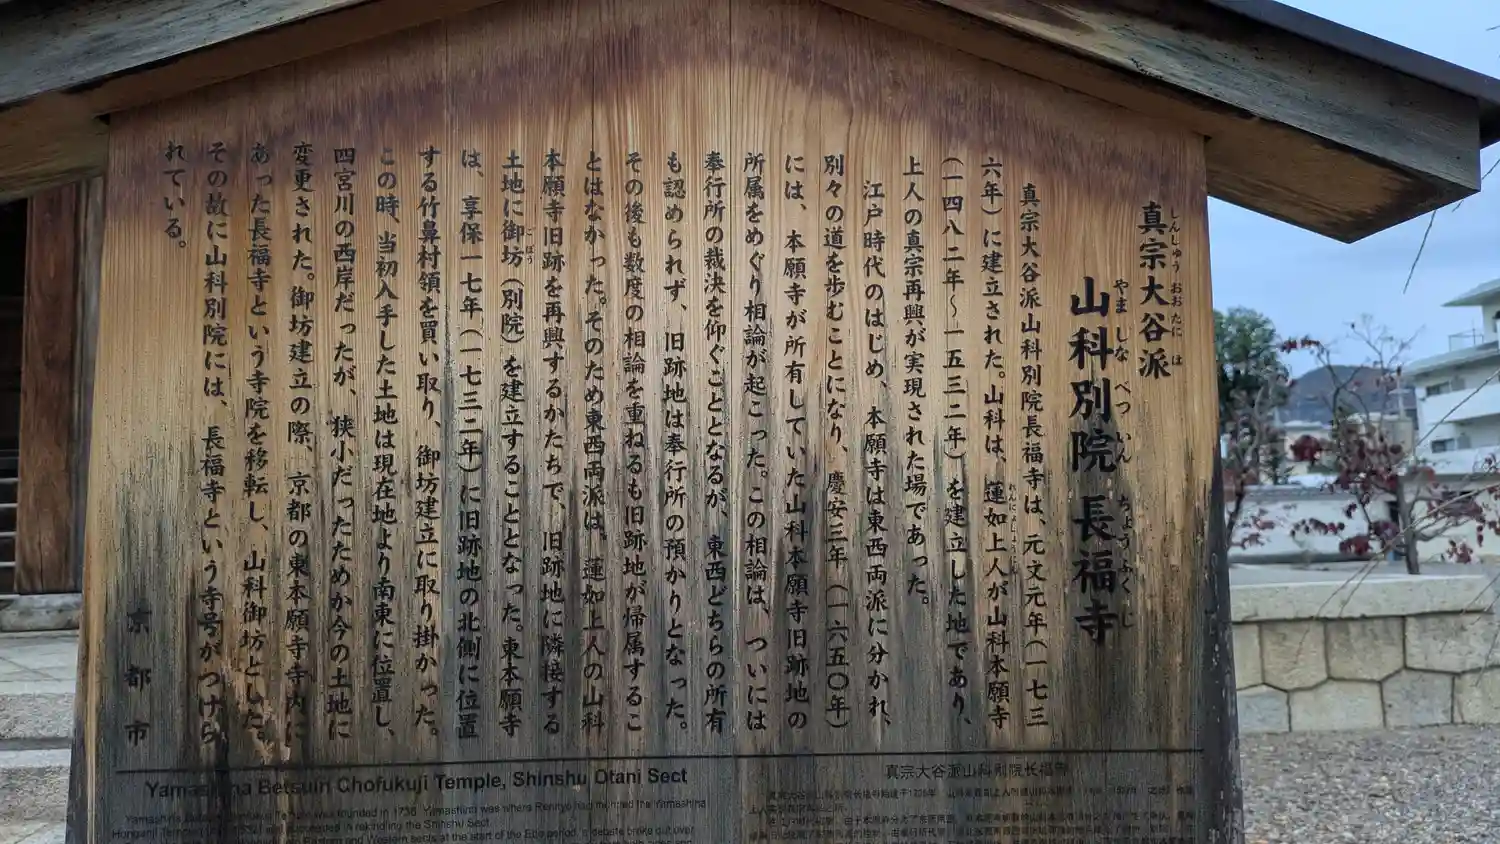 真宗大谷派
しんしゅうおおたには
山科別院 長福寺
やましなべついん ちょうふくじ
真宗大谷派山科別院長福寺は、元文元年（一七三
六年）に建立された。山科は、蓮如上人が山科本願寺
れんにょしょうにん
（一四八二年〜一五三二年）を建立した地であり、
上人の真宗再興が実現された場であった。
江戸時代のはじめ、本願寺は東西両派に分かれ、
別々の道を歩むことになり、慶安三年（一六五〇年）
には、本願寺が所有していた山科本願寺旧跡地の
所属をめぐり相論が起こった。この相論は、ついには
奉行所の裁決を仰ぐこととなるが、東西どちらの所有
も認められず、旧跡地は奉行所の預かりとなった。
その後も数度の相論を重ねるも旧跡地が帰属するこ
とはなかった。そのため東西両派は、蓮如上人の山科
本願寺旧跡を再興するかたちで、旧跡地に隣接する
土地に御坊（別院）を建立することとなった。東本願寺
ごぼう
は、享保一七年（一七三二年）に旧跡地の北側に位置
する竹鼻村領を買い取り、御坊建立に取り掛かった。
この時、当初入手した土地は現在地より南東に位置し、
四宮川の西岸だったが、狭小だったためか今の土地に
変更された。御坊建立の際、京都の東本願寺寺内に
あった長福寺という寺院を移転し、山科御坊とした。
その故に山科別院には、長福寺という寺号がつけら
れている。
京都市
Yamashina Betsuin Chofukuji Temple, Shinshu Otani Sect
was founded in 1736. Yamashina was where Rennyo had founded the Yamashina
in rekindling the Shinshu Sect.
Eastern and Western sects at the start of the Edo period, a debate broke out over
真宗大谷派山科别院长福寺